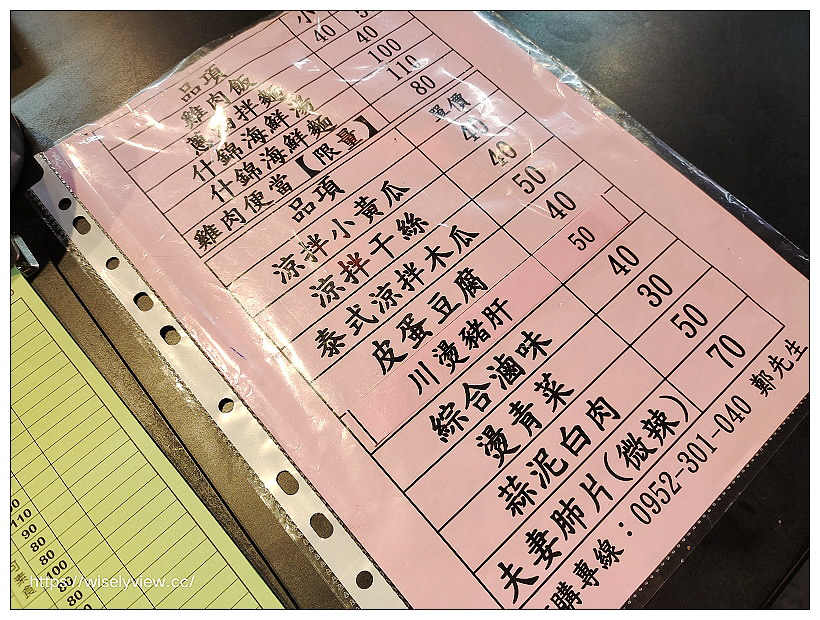 品項 小
雞肉飯 40
拌麵 40
什錦海鮮湯 100
什錦海鮮麵 110
雞肉便當【限量】 80
品項 單價
涼拌小黃瓜 40
涼拌干絲 40
泰式涼拌木瓜 50
皮蛋豆腐 40
川燙豬肝 50
綜合滷味 40
燙青菜 30
蒜泥白肉 50
夫妻肺片(微辣) 70
購專線：0952-301-040 鄭先生
110
90
80
80
100
80
80
https://wiselyview.cc/